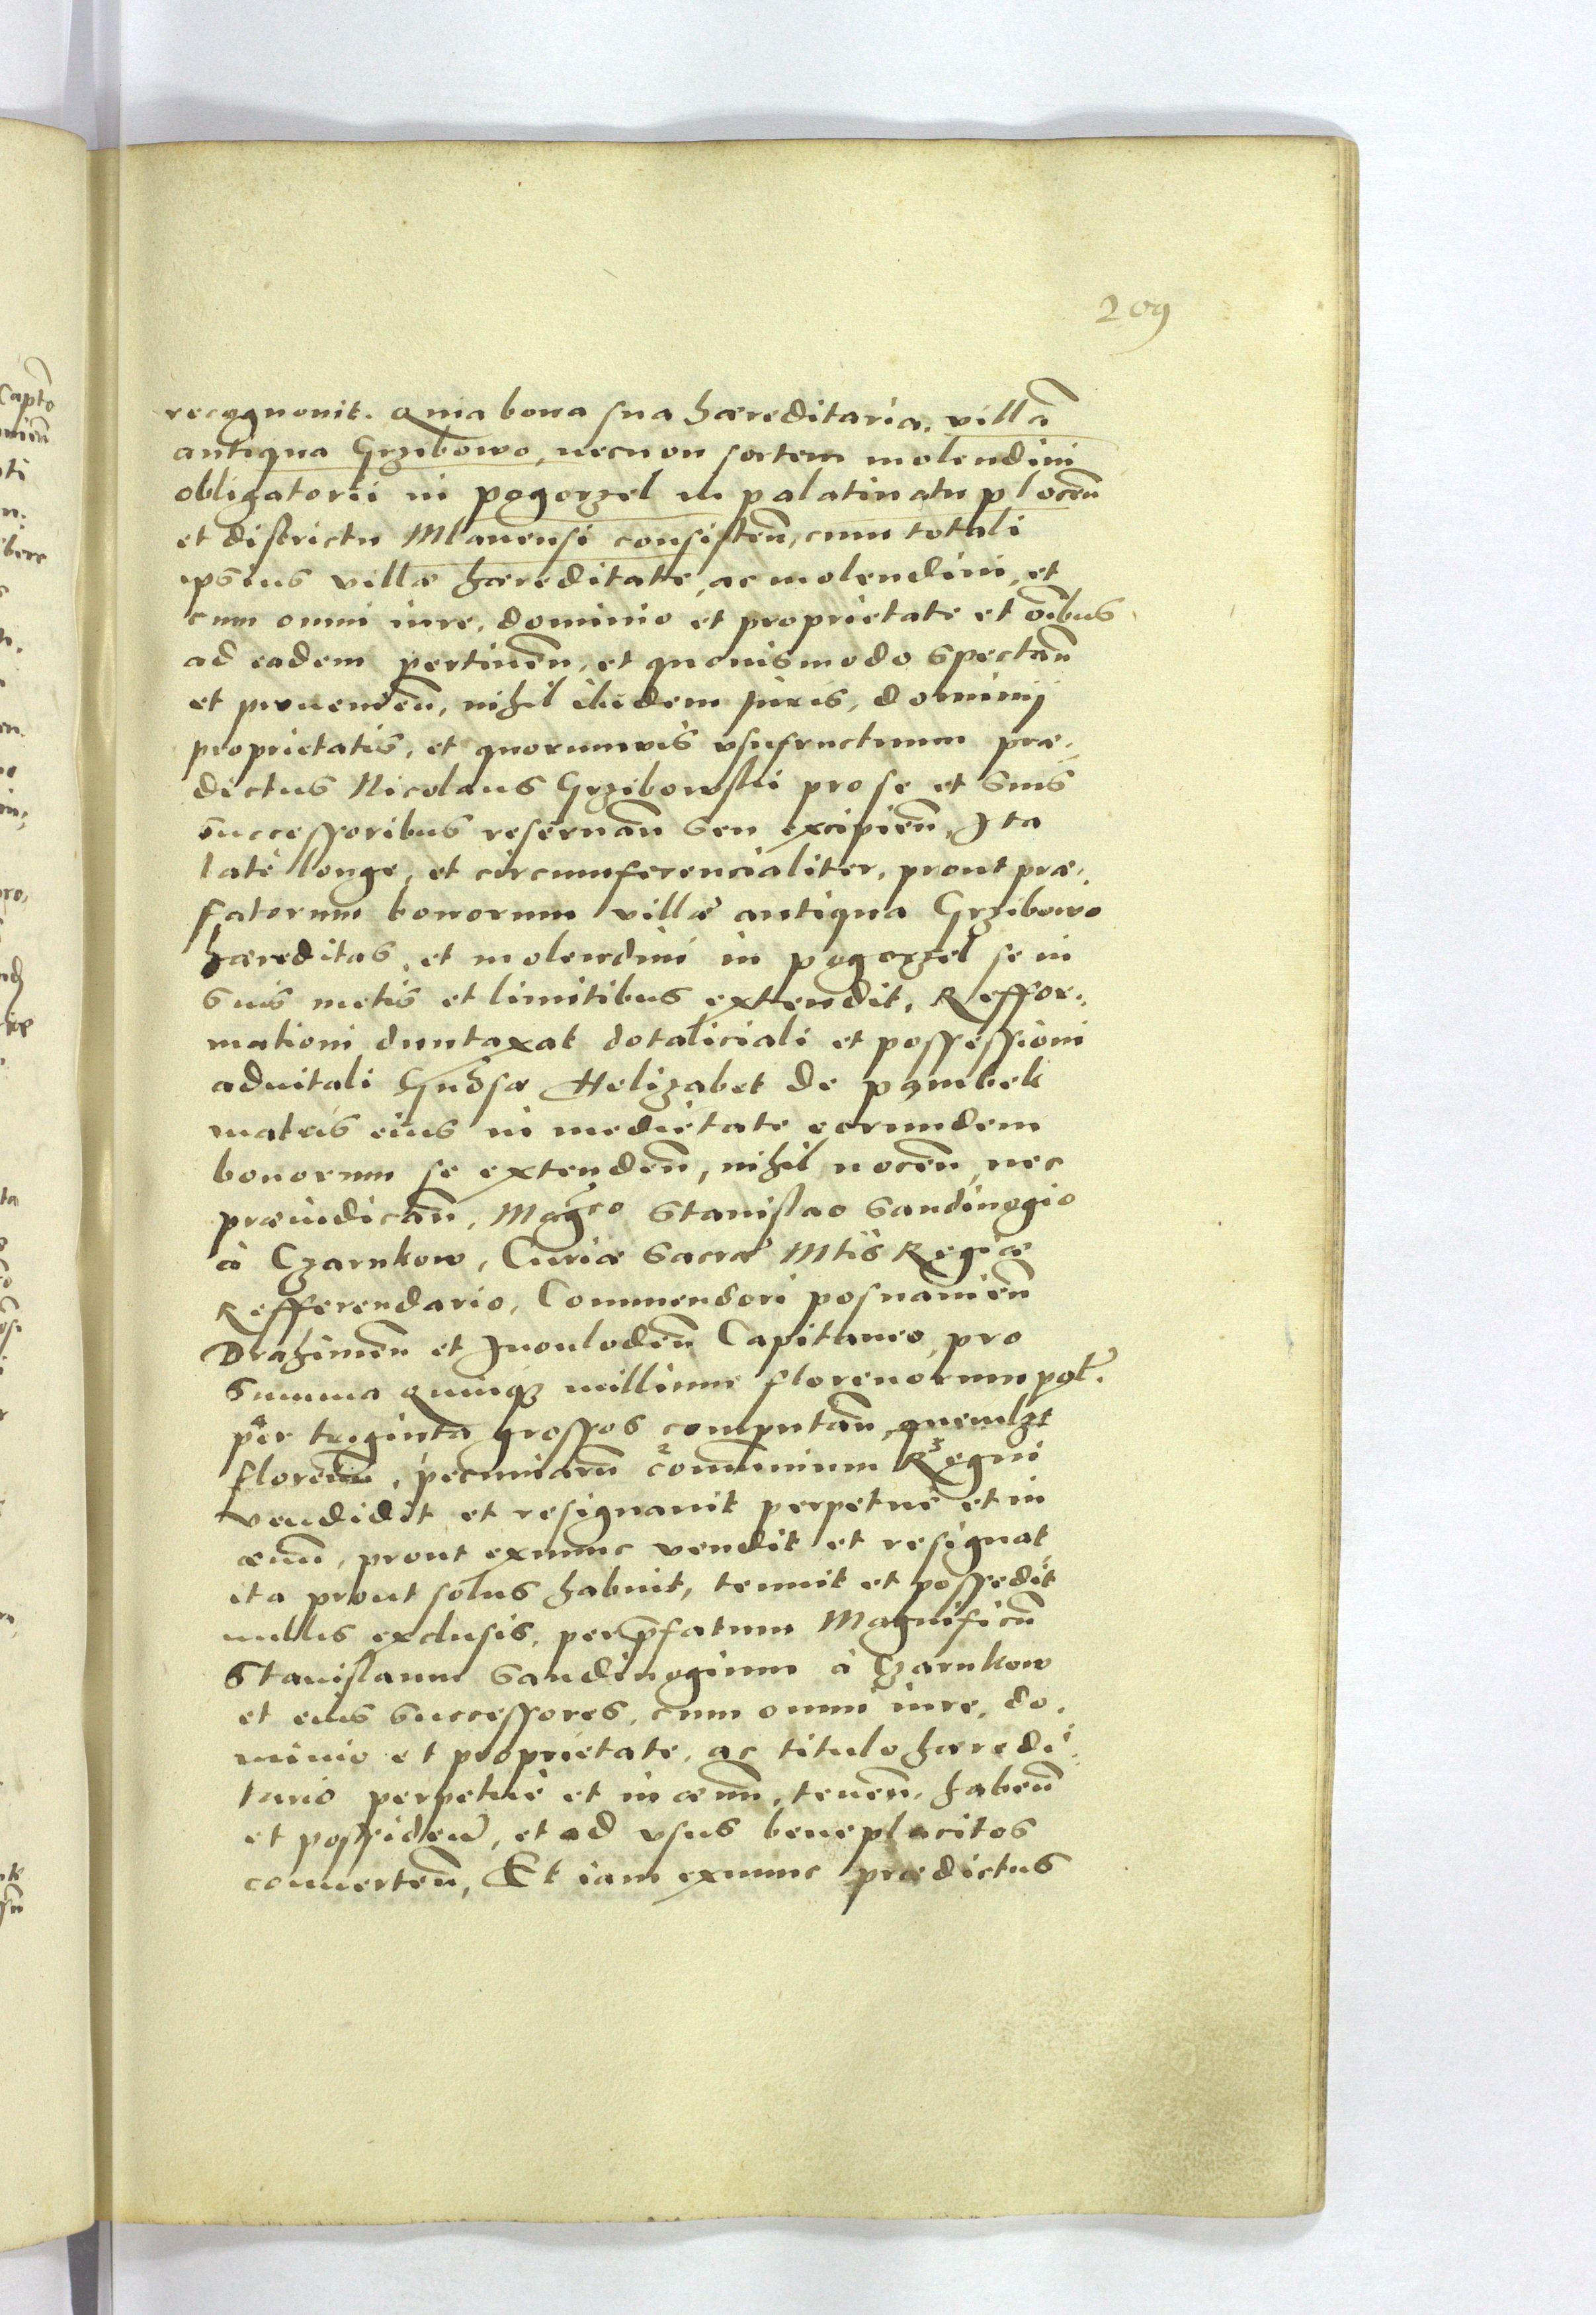 209
recognovit. Quia bona sua hæreditaria, villã
antiqua Grzibowo, necnon sortem molendini
obligatorii in pogorzel in palatinatu plocen̄
et districtu Mlavensi consisten̄, cum totali
ipsius villæ hæreditate, ac molendini, et
cum omni iure, dominio et proprietate et oĩbus
ad eadem pertinen̄, et quovismodo spectan̄
et provenien̄, nihil ibidem juris, dominij
proprietatis, et quorumvis vsufructuum præ,,
dictus Nicolaus Grzibowski pro se et suis
successoribus reservan̄ seu excipien̄, Ita
latè longe, et circumferencialiter, prout præ,,
fatorum bonorum villæ antiqua Grzibowo
hæreditas, et molendini in pogorzel se in
suis metis et limitibus extendit, Reffor,,
mationi duntaxat dotaliciali et possessioni
advitali Gnōsæ Helizabet de
matris eius in medietate eorumdem
bonorum se extenden̄, nihil nocen̄, nec
præiudican̄, Mag͠co Stanislao Sandivogio
à Czarnkow, Curiæ Sacræ Mtis Regiæ
Refferendario, Commendori posnanien̄
Drahimen̄ et Inowlodẽn Capitaneo, pro
Summa quinqꝫ millium florenorum pol̃.
per triginta grossos computan̄, quemlꝫt
floren̄, pecuniarũ communium Regni
vendidit et resignavit perpetuè et in
ævũ, prout exnunc vendit et resignat
ita prout solus habuit, tenuit et possedit
nullis exclusis, per p̄fatum Magnificũ
Stanislaum Sandivogium à Czarnkow
et eius Successores, cum omni iure, do,,
minio et proprietate, ac titulo hæredi,,
tario perpetuè et in ævũ, tenen̄, haben̄
et possiden̄, et ad vsus beneplacitos
converten̄, Et iam exnunc prædictus